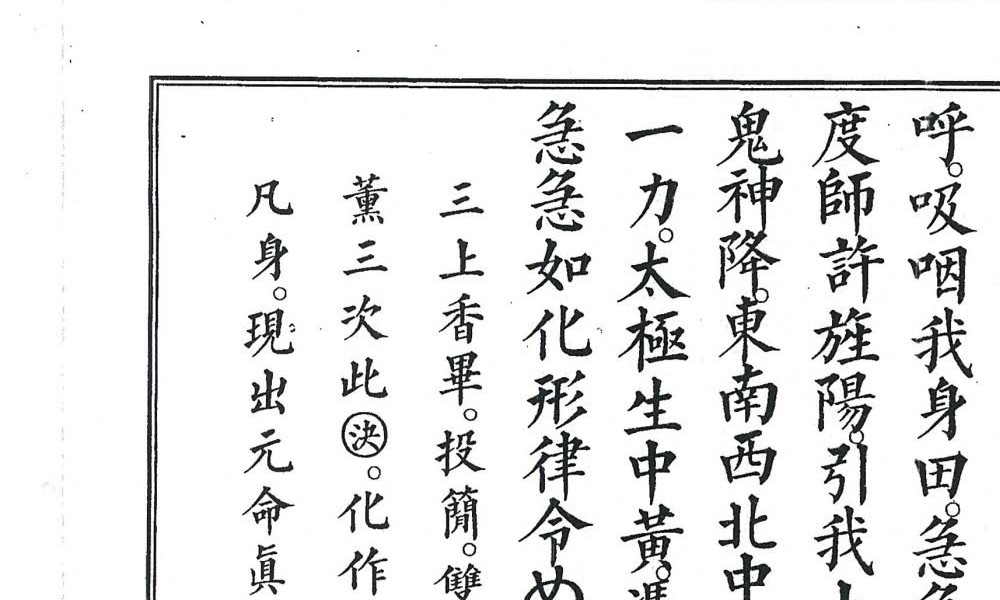 呼。吸咽我身田。急
度師許旌陽。引我
鬼神降。東南西北中
一力。太極生中黃。
急急如化形律令
三上香畢。投簡。雙
薰三次此決。化作
凡身。現出元命眞